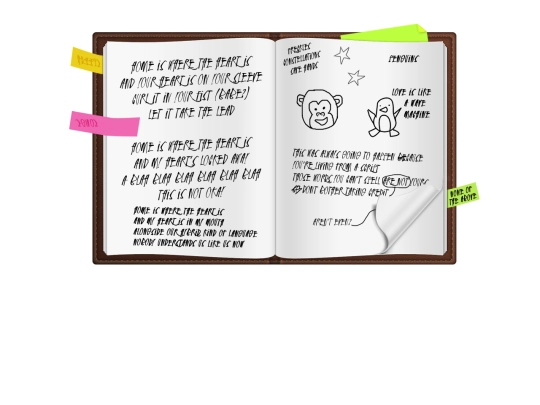 HOME IS WHERE THE HEART IS
AND YOUR HEART IS ON YOUR SLEEVE
CURLS IT IN YOUR FIST (BABE?)
LET IT TAKE THE LEAD
HOME IS WHERE THE HEART IS
AND MY HEART'S LOCKED AWAY
A BLAH BLAH BLAH BLAH BLAH BLAH
THIS IS NOT OKAY
HOME IS WHERE THE HEART IS
AND MY HEART IS IN MY MOUTH
ALONGSIDE OUR HYBRID KIND OF LANGUAGE
NOBODY UNDERSTANDS US LIKE US NOW
FRECKLES
CONSTELLATIONS
CAFE HANDS
PENGUINS
LOVE IS LIKE
A WAVE
MACHINE
THIS WAS ALWAYS GOING TO HAPPEN BECAUSE
YOU'RE LIVING FROM A SCRIPT
THOSE WORDS YOU CAN'T SPELL ARE NOT YOURS
SO DON'T BOTHER TAKING CREDIT
AREN'T EVENT
NONE OF
THE ABOVE